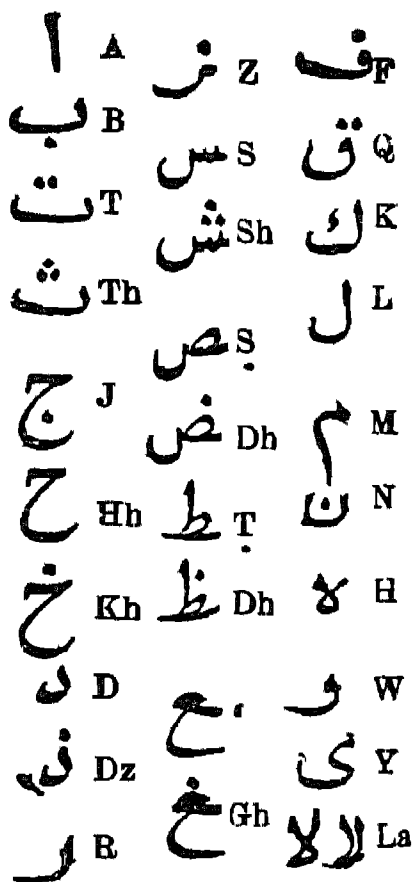 ا A
ب B
ت T
ث Th
ج J
ح Hh
خ Kh
د D
ذ Dz
ر R
ز Z
س S
ش Sh
ص Ṣ
ض Dh
ط Ṭ
ظ Dh
ع ‘
غ Gh
ف F
ق Q
ك K
ل L
م M
ن N
ه H
و W
ى Y
لا لا La